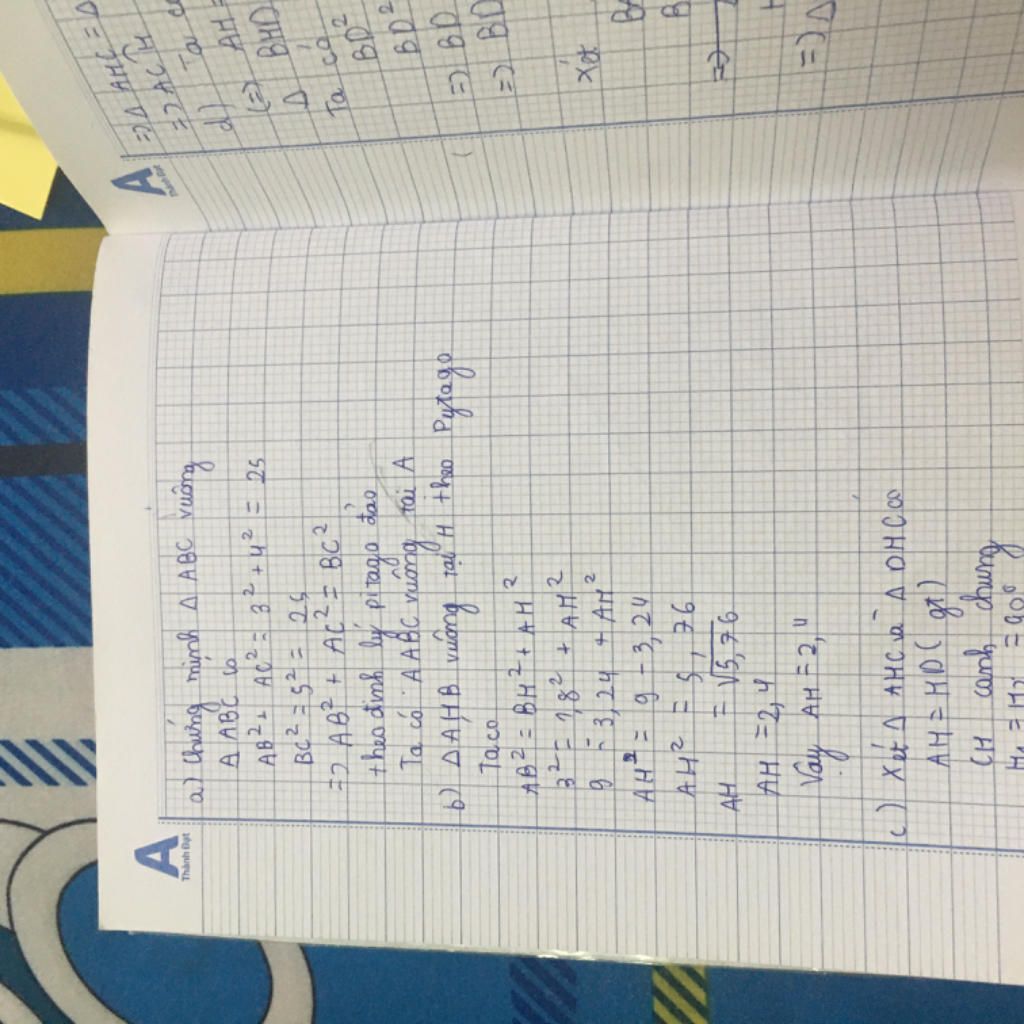 A
Thành Đạt
a) Chứng minh Δ ABC vuông
Δ ABC có
AB² + AC² = 3² + 4² = 25
BC² = 5² = 25
=> AB² + AC² = BC²
theo định lý pitago đảo
Ta có ΔABC vuông tại A
b) Δ AHB vuông tại H theo Pytago
Ta co
AB² = BH² + AH²
3² = 1,8² + AH²
9 = 3,24 + AH²
AH² = 9 - 3,24
AH² = 5,76
AH = √5,76
AH = 2,4
Vậy AH = 2,4
c) Xét Δ AHC và Δ DHC co
AH = HD (gt)
CH cạnh chung
H₁ = H₂ = 90⁰
A
Thành Đạt
=> Δ AHC = Δ
=> ACH
Ta co
d) AH =
(=) BHD
Δ
Ta có
BD²
BD²
=> BD
=> BD
Xét
B
=>
=> Δ